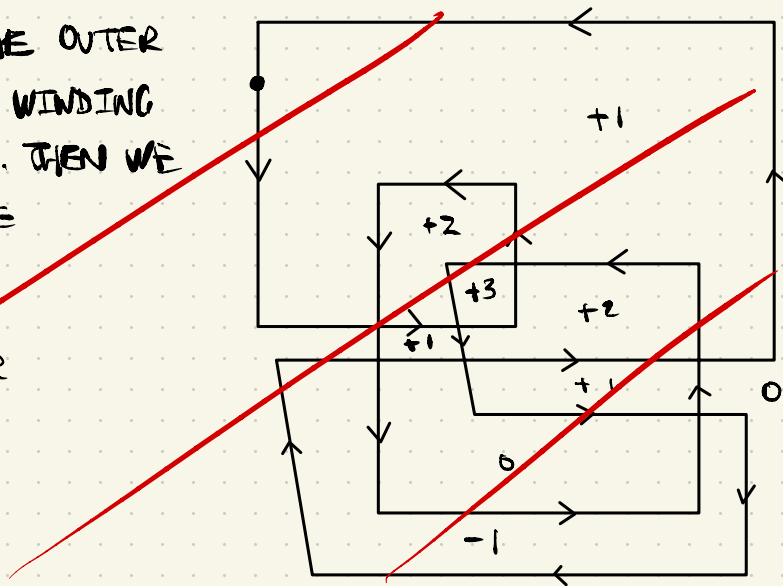 THE OUTER
WINDING
. THEN WE
+1
+2
+3
+2
+1
+
0
0
-1